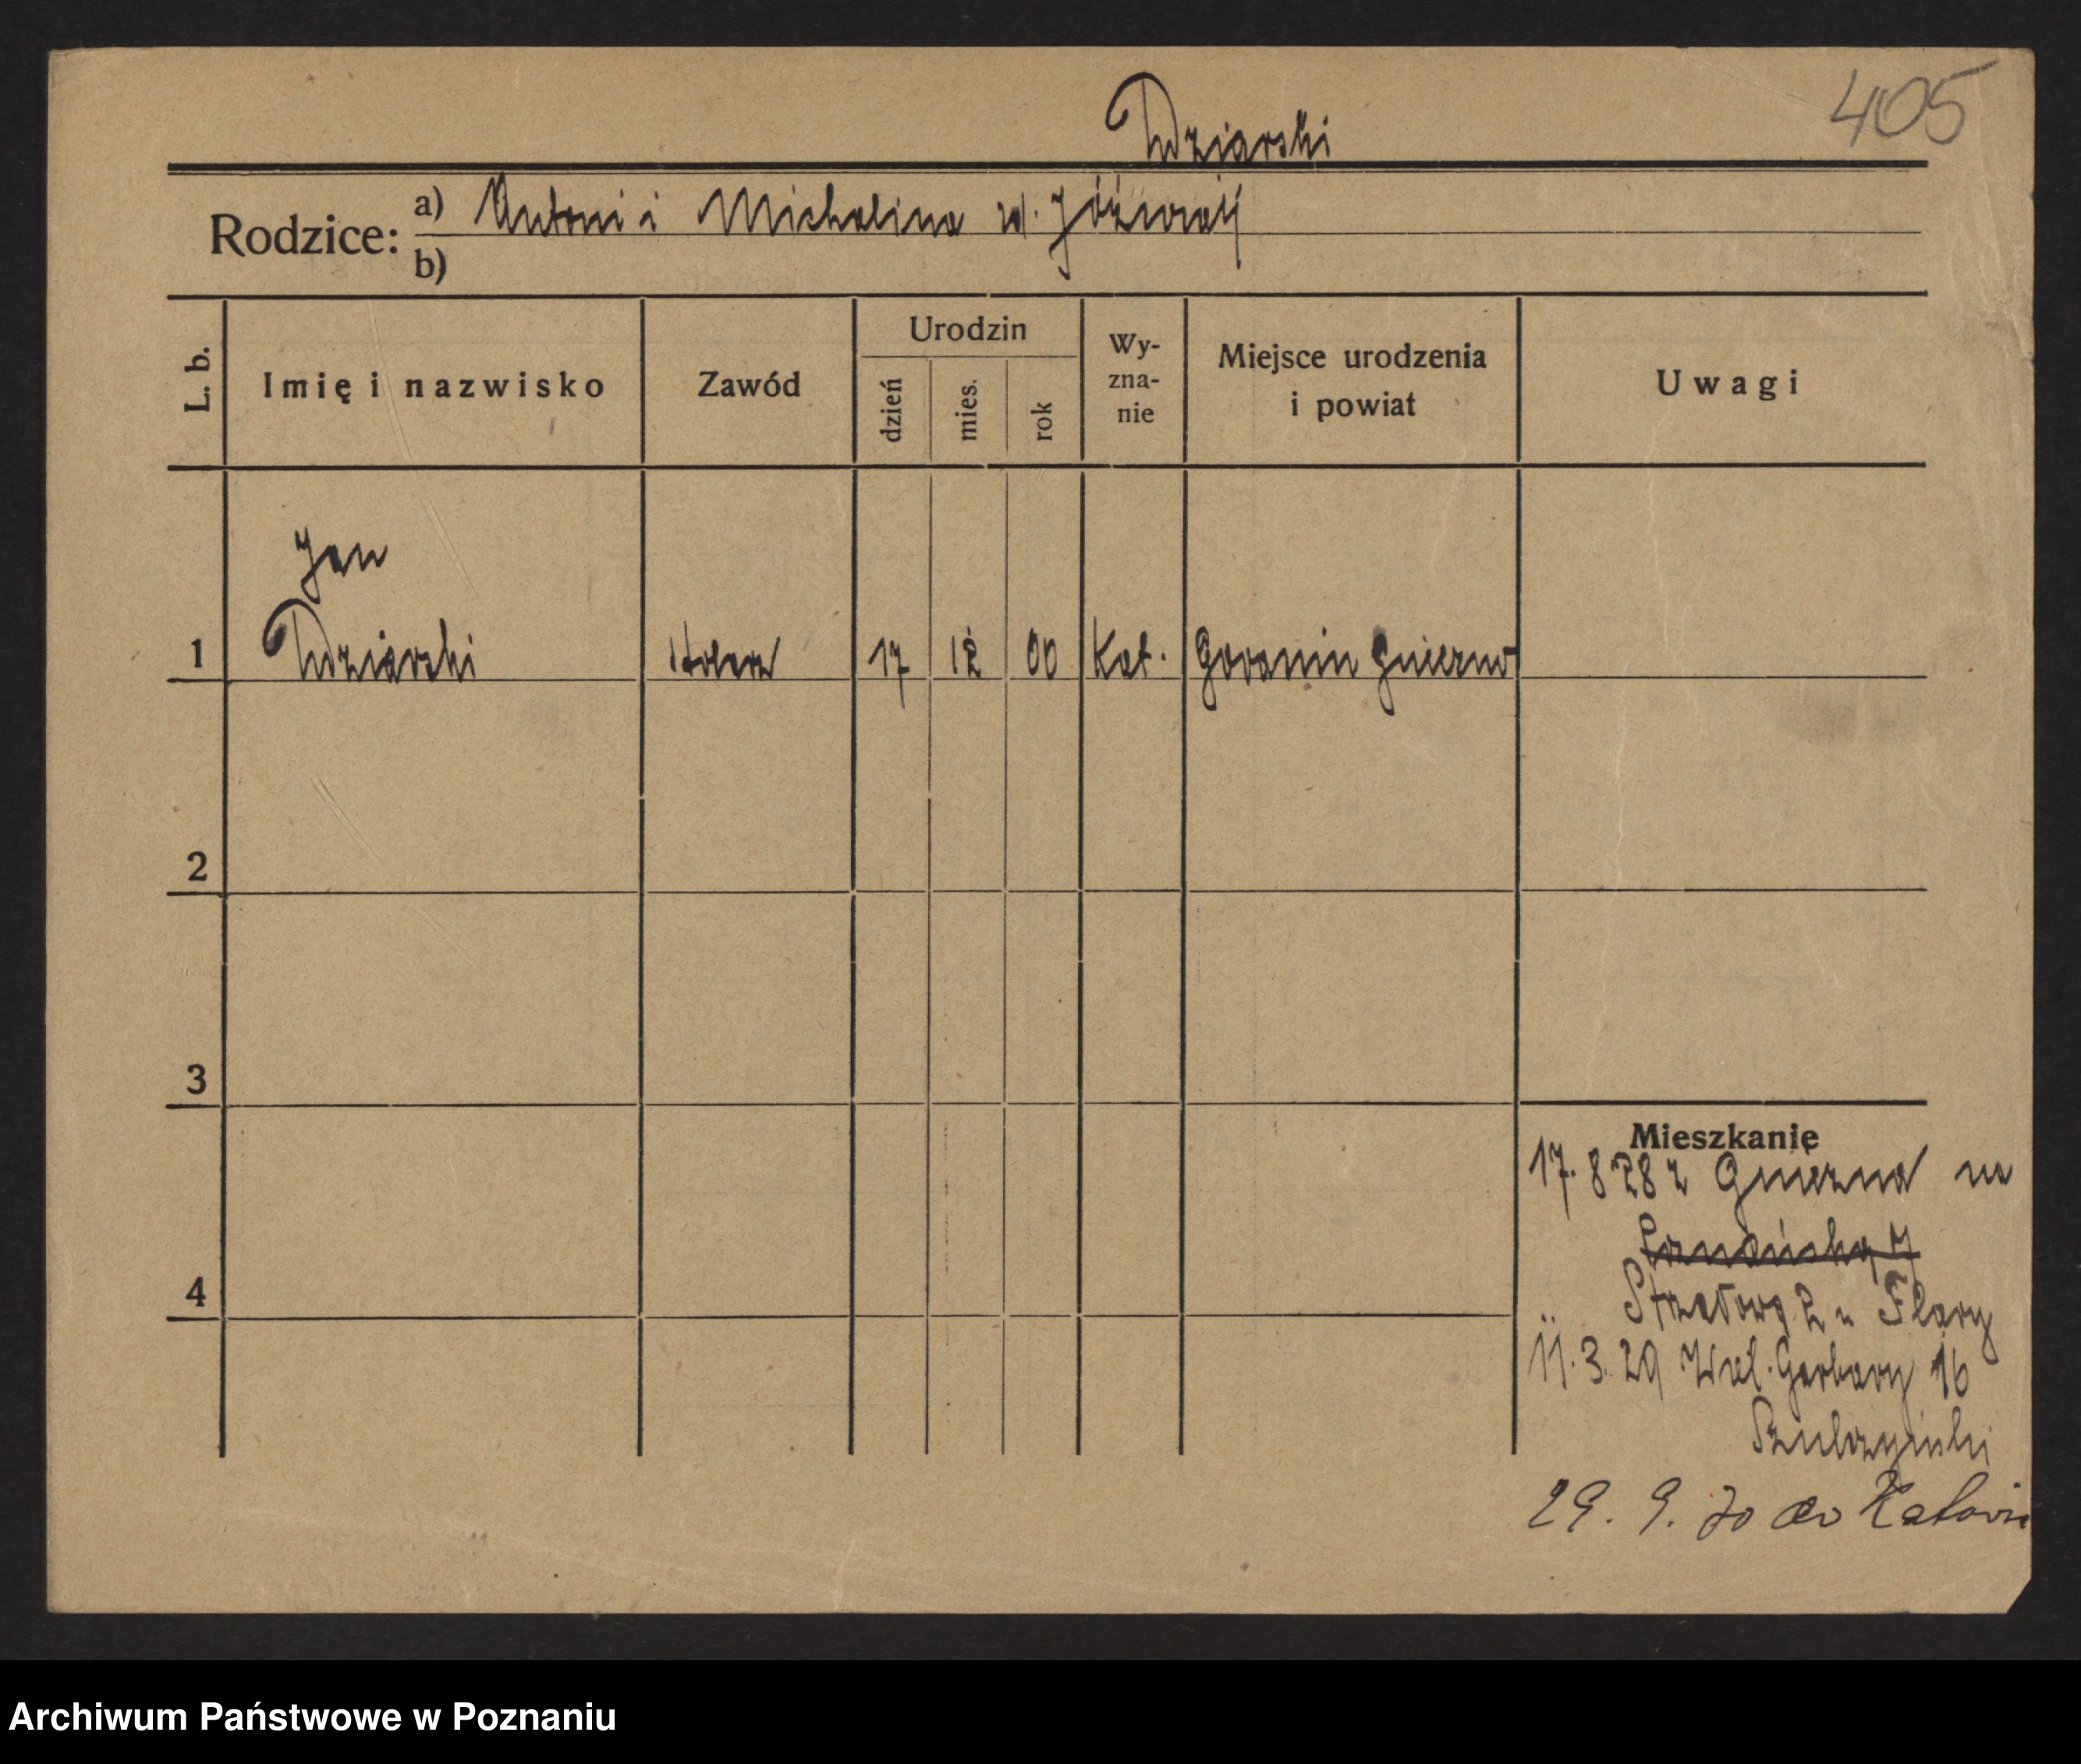 405
Wdziarski
Rodzice: a) Antoni i Michalina
b)
L. b.
Imię i nazwisko
Zawód
Urodzin
dzień
mies.
rok
Wy-
zna-
nie
Miejsce urodzenia
i powiat
Uwagi
Jan
1 Wdziarski stolarz 17 12 00 Kat. Goranin Gniezno
2
3
4
Mieszkanie
17. 8 28 z Gniezna na
Strzałowa 2 u Flary
11. 3. 29 Wiel. Garbary 16
Szulczyński
29. 9. 30 do Katowic
Archiwum Państwowe w Poznaniu